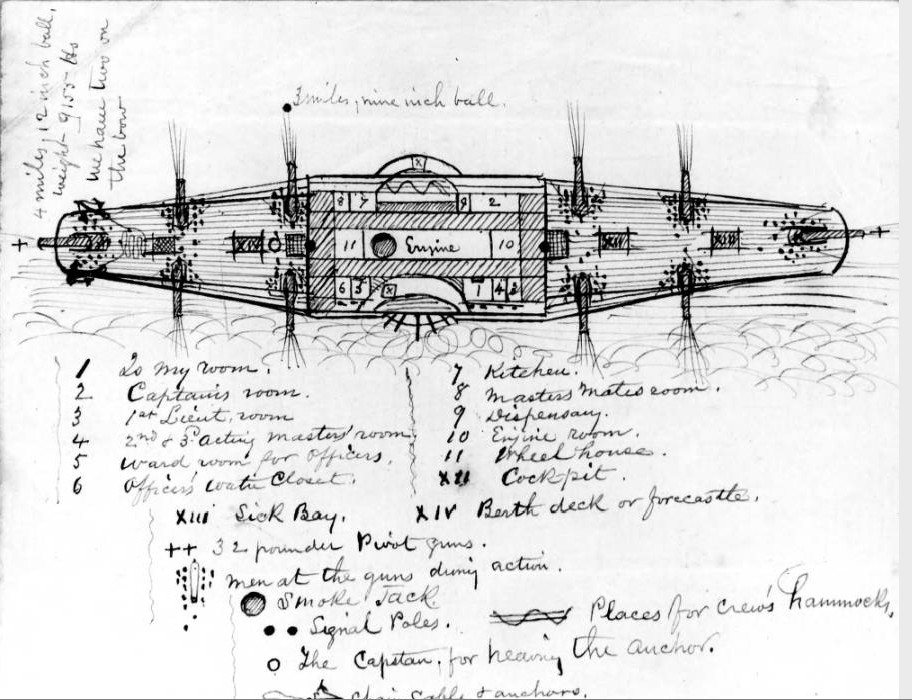 4 miles, 12 inch ball,
weight - 9155 - lbs
we have two on
the bow
3 miles, nine inch ball.
X
8 7 9 2
XIV
11 Engine 10
XIII XII
6 5 X 1 4 3
+ +
1 Is my room.
2 Captains room.
3 1st Lieut. room
4 2nd & 3d acting masters room.
5 Ward room for officers.
6 Officers Water Closet.
7 Kitchen.
8 Masters Mates room.
9 Dispensary.
10 Engine room.
11 Wheel house.
XII Cockpit.
XIII Sick Bay.
XIV Berth deck or forecastle.
++ 32 pounder Pivot guns.
men at the guns during action.
Smoke Jack.
Places for crew's hammocks.
Signal Poles.
The Capstan, for heaving the anchor.
chain cable & anchors.